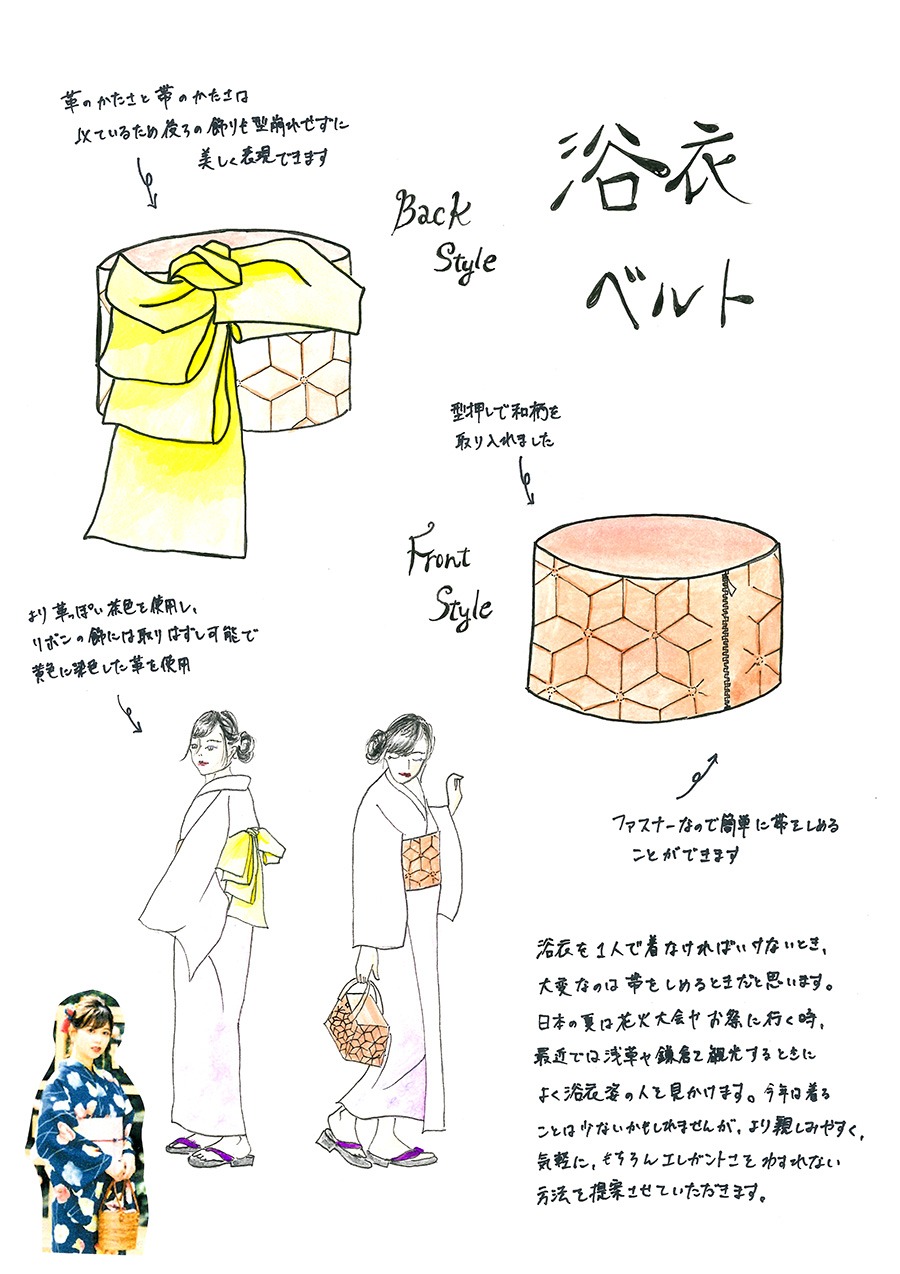 革のかたさと帯のかたさは
似ているため後ろの飾りも型崩れせずに
美しく表現できます
浴衣
ベルト
Back
Style
型押しで和柄を
取り入れました
Front
Style
より革っぽい茶色を使用し、
リボンの飾には取りはずし可能で
黄色に染色した革を使用
ファスナーなので簡単に帯をしめる
ことができます
浴衣を1人で着なければいけないとき、
大変なのは帯をしめるときだと思います。
日本の夏は花火大会やお祭に行く時、
最近では浅草や鎌倉で観光するときに
よく浴衣姿の人を見かけます。今年は着る
ことは少ないかもしれませんが、より親しみやすく、
気軽に、もちろんエレガントさをわすれない
方法を提案させていただきます。